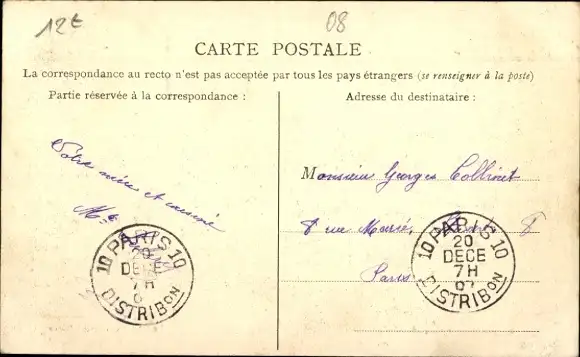 12€
08
CARTE POSTALE
La correspondance au recto n'est pas acceptée par tous les pays étrangers (se renseigner à la poste)
Partie réservée à la correspondance :
Adresse du destinataire :
Votre mère et
Monsieur Georges Collinet
8 rue Marié
Paris
10 PARIS 10
20
DECE
7H
DISTRIBON
10 PARIS 10
20
DECE
7H
07
DISTRIBON